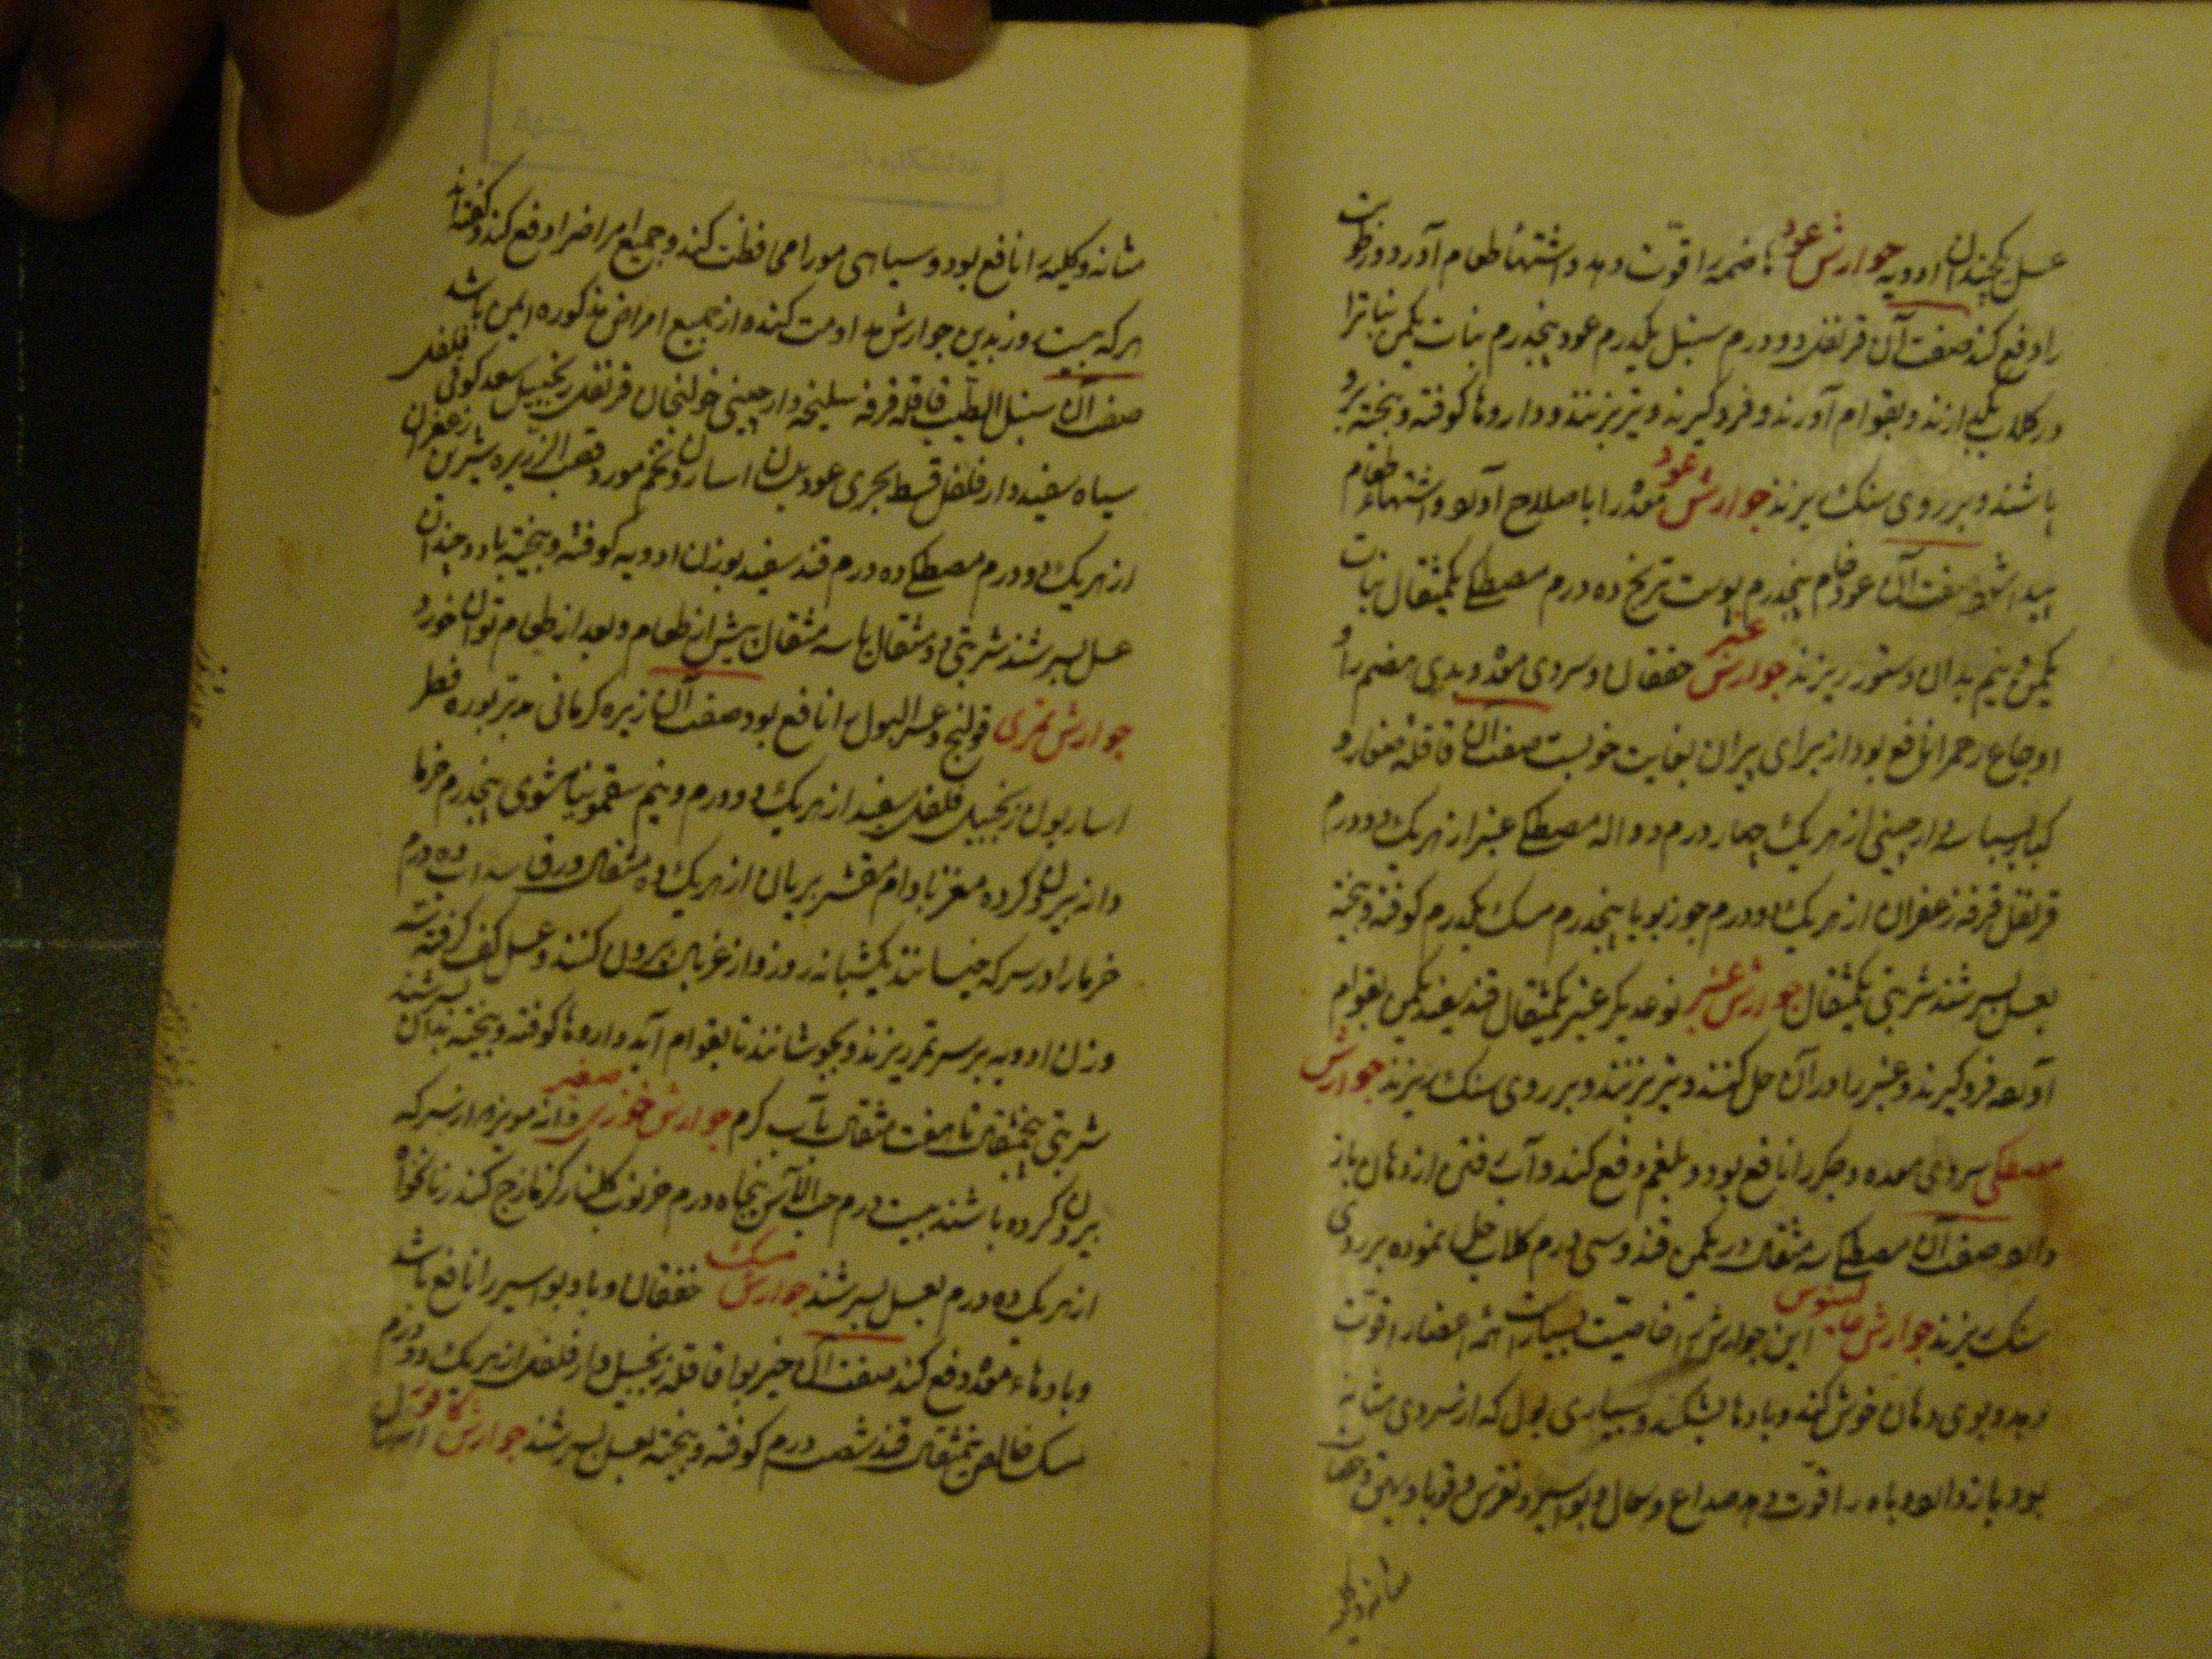 عسل یکچندان ادویه جوارش عود هاضمه را قوت دهد و اشتهاء طعام آورد و رطوبت
را دفع کند صفت آن قرنفل دو درم سنبل یکدرم عود پنجدرم نبات یکمن نبات را
در کلاب بکدازند و بقوام آورند و فرو کیرند و تیز بزنند و داروها کوفته و بیخته برو
باشند و بر روی سنک ریزند جوارش عود معده را باصلاح آورد و اشتهاء طعام
پیدا شود صفت آن عود خام پنجدرم پوست ترنج ده درم مصطکی یکمثقال نبات
یکمن و نیم بدان دستور ریزند جوارش عنبر خفقان و سردی معده و بدی هضم را و
اوجاع رحم را نافع بود از برای پیران بغایت خوبست صفت آن قاقله صغار و
کبار بسباسه دارچینی از هر یک چهار درم دواله مصطکی عنبر از هر یک دو درم
قرنفل قرفه زعفران از هر یک دو درم جوز بویا پنجدرم مسک یکدرم کوفته و بیخته
بعسل بسرشند شربتی یکمثقال جوارش عنبر نوع دیکر عنبر یکمثقال قند سفید یکمن بقوام
آورده فرو کیرند و عنبر را در آن حل کنند و تیز بزنند و بر روی سنک ریزند جوارش
مصطکی سردی معده و جکر را نافع بود و بلغم دفع کند و آب رفتن از دهان باز
دارد صفت آن مصطکی سه مثقال در یکمن قند و سی درم کلاب حل نموده بر روی
سنک ریزند جوارش جالینوس این جوارش را خاصیت بسیار است همه اعضا را قوت
دهد و بوی دهان خوش کند و بادها بشکند و بسیاری بول که از سردی مثانه
بود باز دارد و باه را قوت دهد صداع و سعال و بواسیر و نقرس و قوبا و بهق و
مثانه و کلیه
مثانه و کلیه را نافع بود و سیاهی مو را محافظت کند و جمیع امراض را دفع کند و کفته اند
هر که بیست روز بدین جوارش مداومت کند از جمیع امراض مذکوره ایمن باشد
صفت آن سنبل الطیب قاقله قرفه سلیخه دارچینی خولنجان قرنفل زنجبیل سعد کوفی فلفل
سیاه سفید دار فلفل قسط بحری عود بلسان اسارون تخم مورد قصب الزریره شیرین زعفران
از هر یک دو درم مصطکی ده درم قند سفید بوزن ادویه کوفته و بیخته با دو چندان
عسل بسرشند شربتی دو مثقال تا سه مثقال پیش از طعام و بعد از طعام توان خورد
جوارش تمری قولنج و عسر البول را نافع بود صفت آن زیره کرمانی مدبر بوره فطر
اسارون زنجبیل فلفل سفید از هر یک دو درم و نیم سقمونیا مشوی پنجدرم خرما
دانه بیرون کرده مغز بادام مقشر بریان از هر یک ده مثقال ورق سداب ده درم
خرما را در سرکه خیسانند یکشبانه روز و از غربال بیرون کنند و عسل کف کرفته سه
وزن ادویه بر سر تمر ریزند و بجوشانند تا بقوام آید داروها کوفته و بیخته بدان بسرشند
شربتی پنجمثقال تا هفت مثقال بآب کرم جوارش خوزی صغیر دانه مویز را از سرکه
بیرون کرده باشند بیست درم حب الآس پنجاه درم خرنوب کلنار کزمازج کندر نانخواه
از هر یک ده درم بعسل بسرشند جوارش مسک خفقان و باد بواسیر را نافع باشد
و بادهاء معده دفع کند صفت آن خیربوا قاقله زنجبیل دار فلفل از هر یک دو درم
مسک خالص پنجمثقال قند شصت درم کوفته و بیخته بعسل بسرشند جوارش کافور